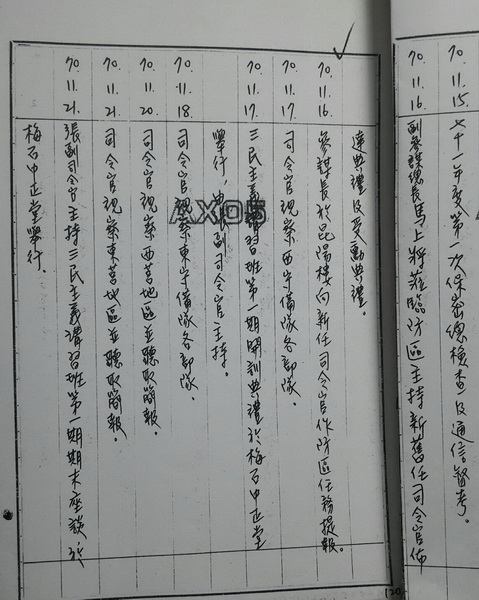 70.11.15. 七十一年度第一次保密總檢查及通信督考。
70.11.16. 副參謀總長馬上將蒞臨防區主持新舊任司令官佈
達典禮及受勳典禮。
70.11.16. 參謀長於昆陽樓向新任司令官作防區任務提報。
70.11.17. 司令官視察西守備隊各部隊。
70.11.17. 三民主義講習班第一期開訓典禮於梅石中正堂
舉行，由張副司令官主持。
70.11.18. 司令官視察東守備隊各部隊。
70.11.20. 司令官視察西莒地區並聽取簡報。
70.11.21. 司令官視察東莒地區並聽取簡報。
70.11.21. 張副司令官主持三民主義講習班第一期期末座談於
梅石中正堂舉行。
AX05
120